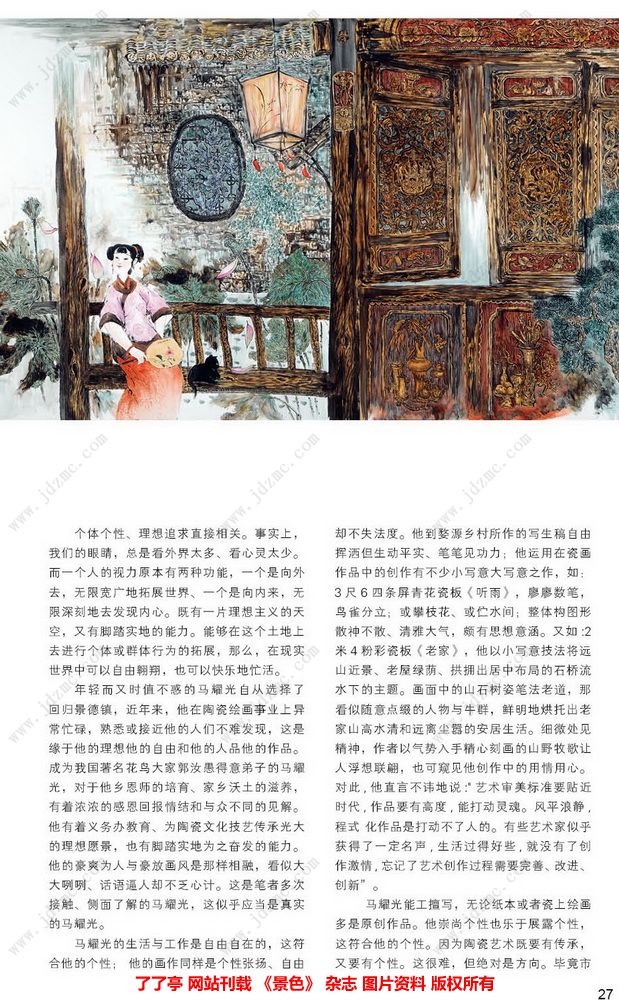 个体个性、理想追求直接相关。事实上，
我们的眼睛，总是看外界太多、看心灵太少。
而一个人的视力原本有两种功能，一个是向外
去，无限宽广地拓展世界、一个是向内来，无
限深刻地去发现内心。既有一片理想主义的天
空，又有脚踏实地的能力。能够在这个土地上
去进行个体或群体行为的拓展，那么，在现实
世界中可以自由翱翔，也可以快乐地忙活。
年轻而又时值不惑的马耀光自从选择了
回归景德镇，近年来，他在陶瓷绘画事业上异
常忙碌，熟悉或接近他的人们不难发现，这是
缘于他的理想他的自由和他的人品他的作品。
成为我国著名花鸟大家郭汝愚得意弟子的马耀
光，对于他乡恩师的培育、家乡沃土的滋养，
有着浓浓的感恩回报情结和与众不同的见解。
他有着义务办教育、为陶瓷文化技艺传承光大
的理想愿景，也有脚踏实地为之奋发的能力。
他的豪爽为人与豪放画风是那样相融，看似大
大咧咧、话语逼人却不乏心计。这是笔者多次
接触、侧面了解的马耀光，这似乎应当是真实
的马耀光。
马耀光的生活与工作是自由自在的，这符
合他的个性； 他的画作同样是个性张扬、自由
却不失法度。他到婺源乡村所作的写生稿自由
挥洒但生动平实、笔笔见功力；他运用在瓷画
作品中的创作有不少小写意大写意之作，如：
3尺6四条屏青花瓷板《听雨》，廖廖数笔，
鸟雀分立；或攀枝花、或伫水间；整体构图形
散神不散、清雅大气，颇有思想意涵。又如:2
米4粉彩瓷板《老家》，他以小写意技法将远
山近景、老屋绿荫、拱拥出居中布局的石桥流
水下的主题。画面中的山石树姿笔法老道，那
看似随意点缀的人物与牛群，鲜明地烘托出老
家山高水清和远离尘嚣的安居生活。细微处见
精神，作者以气势入手精心刻画的山野牧歌让
人浮想联翩，也可窥见他创作中的用情用心。
对此，他直言不讳地说："艺术审美标准要贴近
时代，作品要有高度，能打动灵魂。风平浪静，
程式 化作品是打动不了人的。有些艺术家似乎
获得了一定名声，生活过得好些，就没有了创
作激情，忘记了艺术创作过程需要完善、改进、
创新”。
马耀光能工擅写，无论纸本或者瓷上绘画
多是原创作品。他崇尚个性也乐于展露个性，
这符合他的个性。因为陶瓷艺术既要有传承，
又要有个性。这很难，但绝对是方向。毕竟市
了了亭 网站刊载 《景色》 杂志 图片资料 版权所有
27
www.jdzmc.com